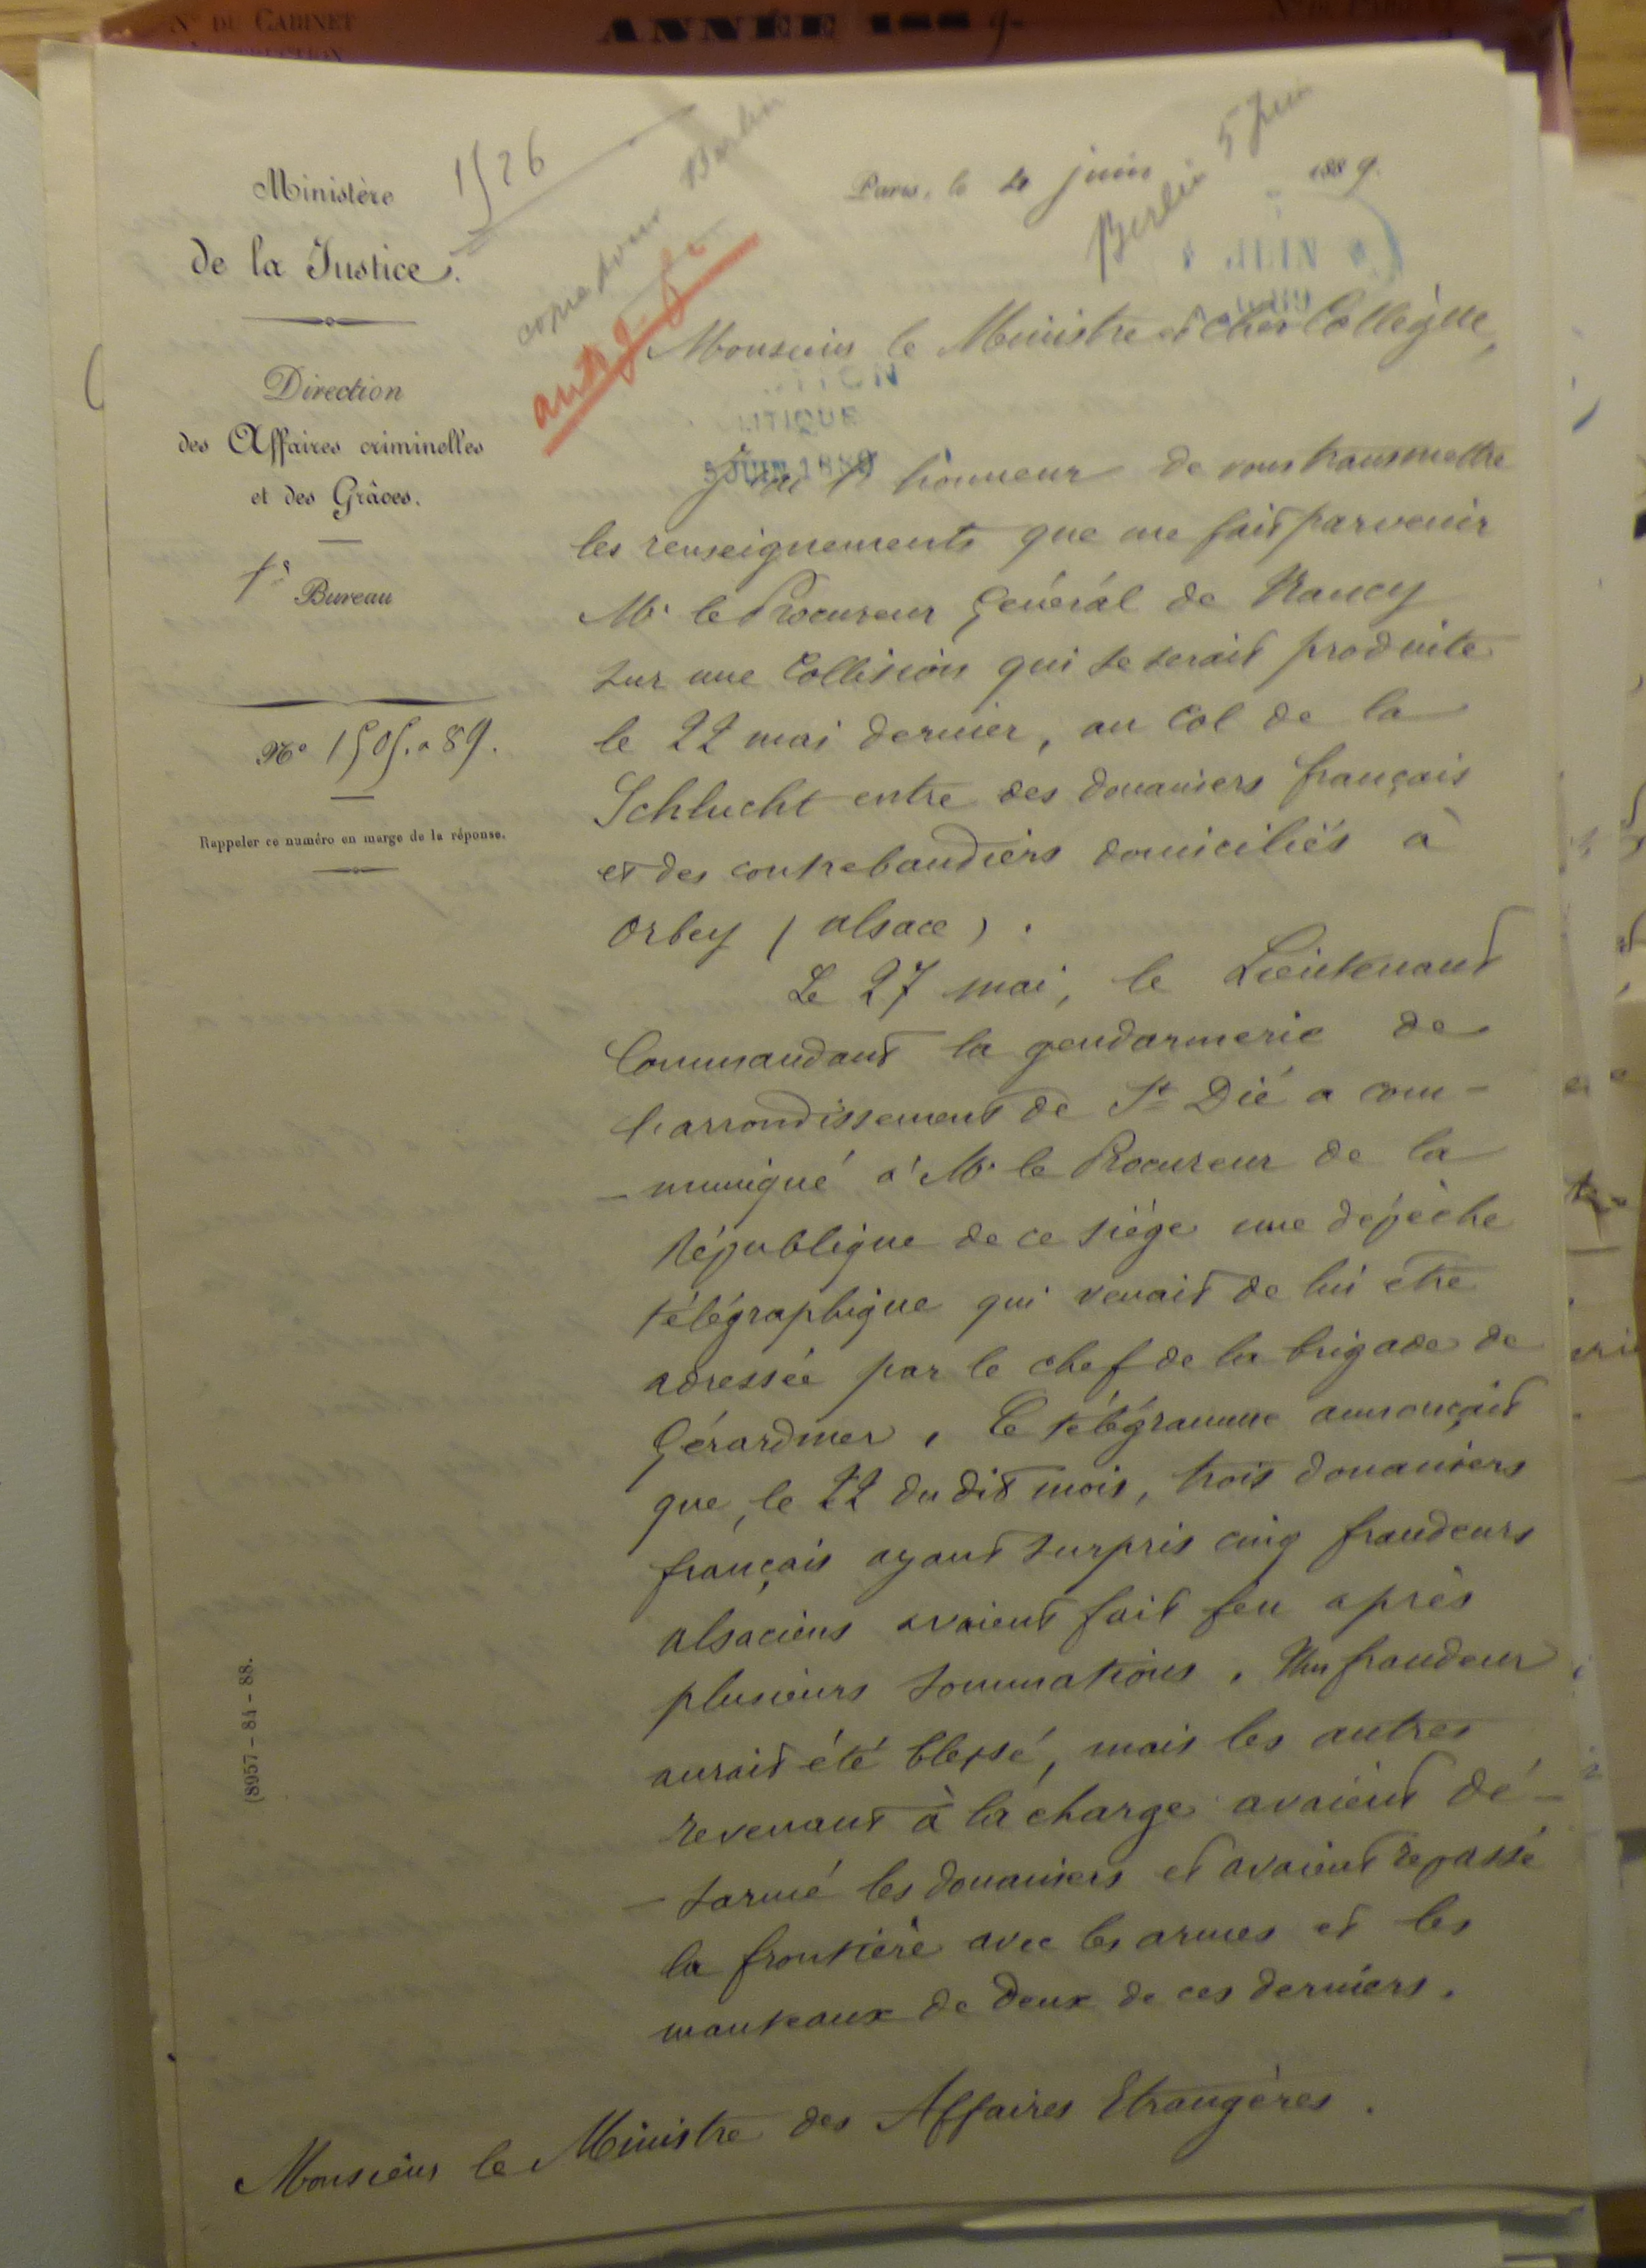 Nº DU CABINET
ANNÉE 1889
1526
Berlin 5 Juin
copie pour Berlin
Ministère
de la Justice.
Direction
des Affaires criminelles
et des Grâces.
1er Bureau
Nº 1505. a 89.
Rappeler ce numéro en marge de la réponse.
(8957-84-88.
Paris, le 4 juin 1889.
Monsieur le Ministre et cher Collègue,
ITIQUE
5 JUIN 1889
J'ai l'honneur de vous transmettre
les renseignements que me fait parvenir
Mr le Procureur Général de Nancy
sur une Collision qui se serait produite
le 22 mai dernier, au Col de la
Schlucht entre des douaniers français
et des contrebandiers domiciliés à
Orbey (alsace).
Le 27 mai, le Lieutenant
Commandant la gendarmerie de
l'arrondissement de St Dié a com-
-muniqué à Mr le Procureur de la
République de ce siége une dépèche
télégraphique qui venait de lui être
adressée par le chef de la brigade de
Gérardmer, Ce télégramme annonçait
que, le 22 du dit mois, trois douaniers
français ayant surpris cinq fraudeurs
alsaciens avaient fait feu après
plusieurs sommations. Un fraudeur
aurait été blessé, mais les autres
revenant à la charge avaient dé-
-sarmé les douaniers et avaient repassé
la frontière avec les armes et les
manteaux de deux de ces derniers.
Monsieur le Ministre des Affaires Etrangères.